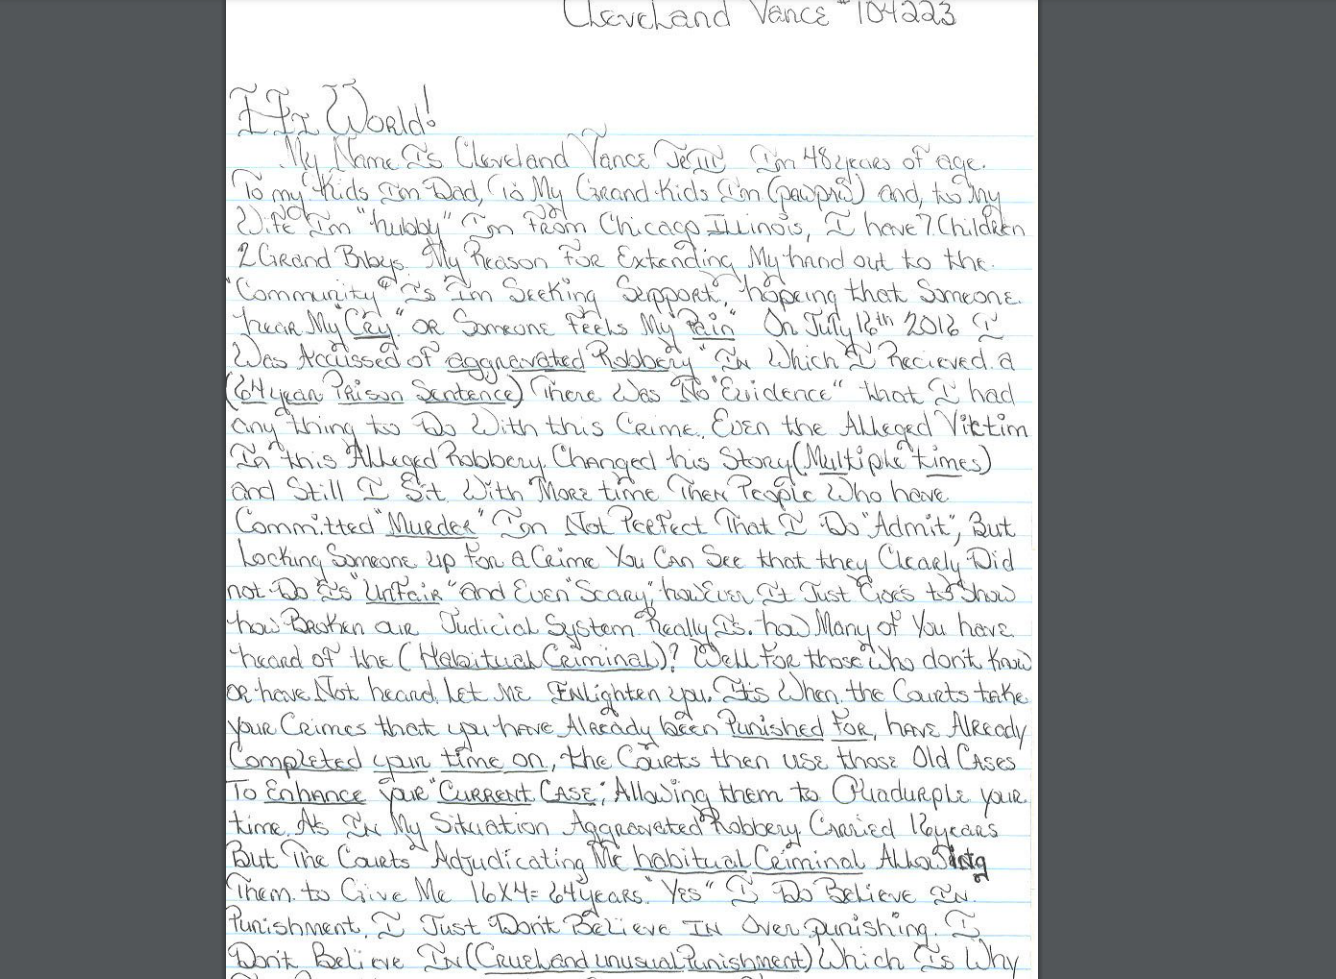 Cleveland Vance #104223
Hi World!
My Name Is Cleveland Vance Im 48 years of age.
To my "Kids Im Dad, To My Grand-Kids Im (pawpa's) and, to My
Wife Im "hubby" Im from Chicago Illinois, I have 7 Children
2 Grand Babys. My Reason For Extending My hand out to the
"Community" Is Im Seeking Support, hopeing that Someone
hear My "Cry" OR Someone Feels My "Pain" On July 16th 2016 I
Was Accussed of aggravated Robbery" In Which I Recieved a
(64 year Prison Sentence) There Was No "Evidence" that I had
any thing to Do With this Crime. Even the Alleged Vicktim
In this Alleged Robbery Changed his Story (Multiple times)
and Still I Sit With More time Then People Who have
Committed "Murder" Im Not Perfect That I Do "Admit", But
Locking Someone up For a Crime You Can See that they Clearly Did
not Do Is "Unfair" and Even "Scary", however It Just Goes to Show
how Broken our Judicial System Really Is. how Many of You have
heard of the (Habitual Criminal)? Well For those Who don't Know
or have Not heard, Let Me Enlighten you. It's When the Courts take
your Crimes that you have Already been Punished For, have Already
Completed your time on, the Courts then use those Old Cases
To Enhance your "Current Case", Allowing them to Quadurple your
time. As In My Situation Aggravated Robbery Carried 16 years
But The Courts Adjudicating Me habitual Criminal Allowing
Them to Give Me 16X4= 64 years. "Yes" I Do Believe In
Punishment, I Just Don't Believe In Over punishing. I
Don't Believe In (Cruel and unusual Punishment) Which Is Why